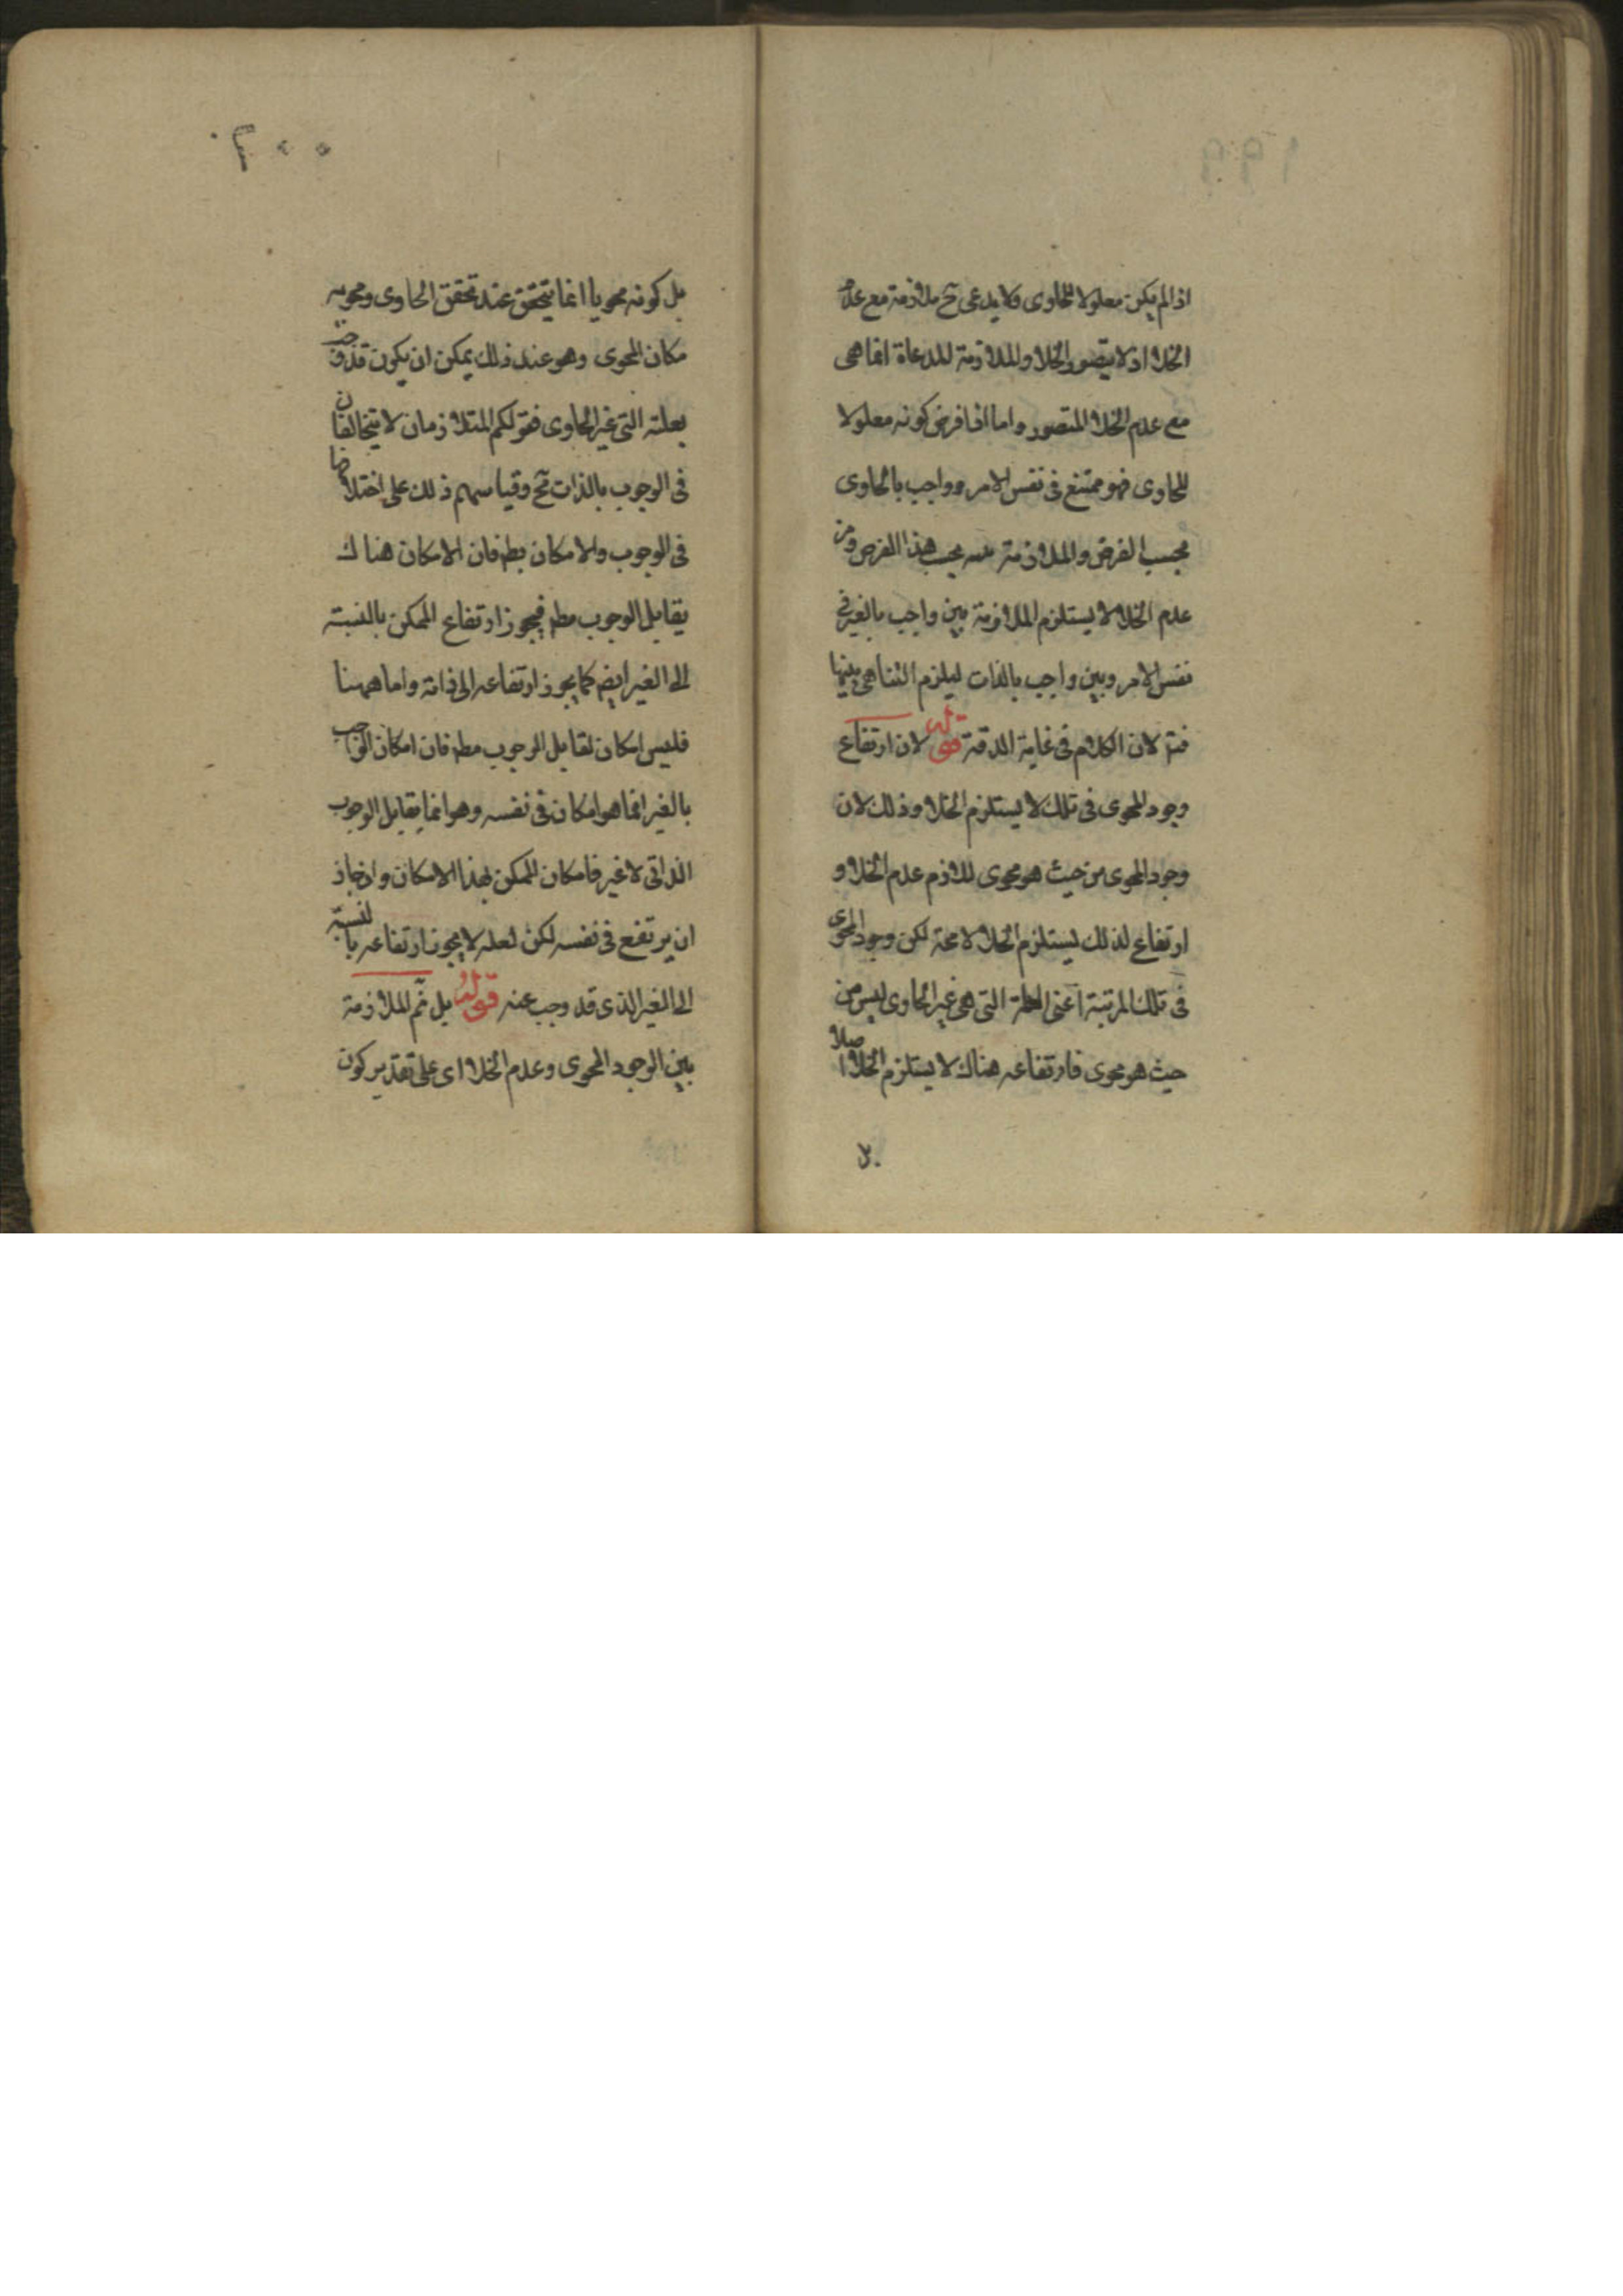 ١٩٩
اذا لم يكن معلولا للحاوى ولا يدعى ح ملازمة مع عدم
الخلا اذ لا يتصور الخلا والملازمة المدعاة انما هى
مع عدم الخلا المتصور واما اذا فرض كونه معلولا
للحاوى فهو ممتنع فى نفس الامر وواجب بالحاوى
بحسب الفرض والملازمة بحسب هذا الفرض
عدم الخلا لا يستلزم الملازمة بين واجب بالغير فى
نفس الامر وبين واجب بالذات ليلزم التنافى بينهما
لان الكلام فى غاية الدقة قوله لان ارتفاع
وجود المحوى فى تلك لا يستلزم الخلا وذلك لان
وجود المحوى من حيث هو محوى للازم عدم الخلا و
ارتفاع لذلك يستلزم الخلا لا محة لكن وجود المحوى
فى تلك المرتبة اعنى العلة التى هى غير الحاوى ليس من
حيث هو محوى فارتفاعه هناك لا يستلزم الخلا اصلا
٢٠٠
بل كونه محويا انما يتحقق عند تحقق الحاوى
مكان المحوى وهو عند ذلك يمكن ان يكون قد
بعلته التى غير الحاوى فقولكم المتلازمان لا يتخالفان
فى الوجوب بالذات ح وقياسهم ذلك على
فى الوجوب والامكان بط فان الامكان هناك
يقابل الوجوب مط فيجوز ارتفاع الممكن بالنسبته
الى الغير ايض كما يجوز ارتفاعه الى ذاته واما ههنا
فليس امكان لقابل الوجوب مط فان امكان الواجب
بالغير انما هو امكان فى نفسه وهو انما يقابل الوجوب
الذاتى لا غير فامكان الممكن بهذا الامكان
ان يرتفع فى نفسه لكن لعله لا يجوز ارتفاعه بالنسبة
الى الغير الذى قد وجب عنه قوله بل ثم الملازمة
بين الوجود المحوى وعدم الخلا اى على تقدير كون